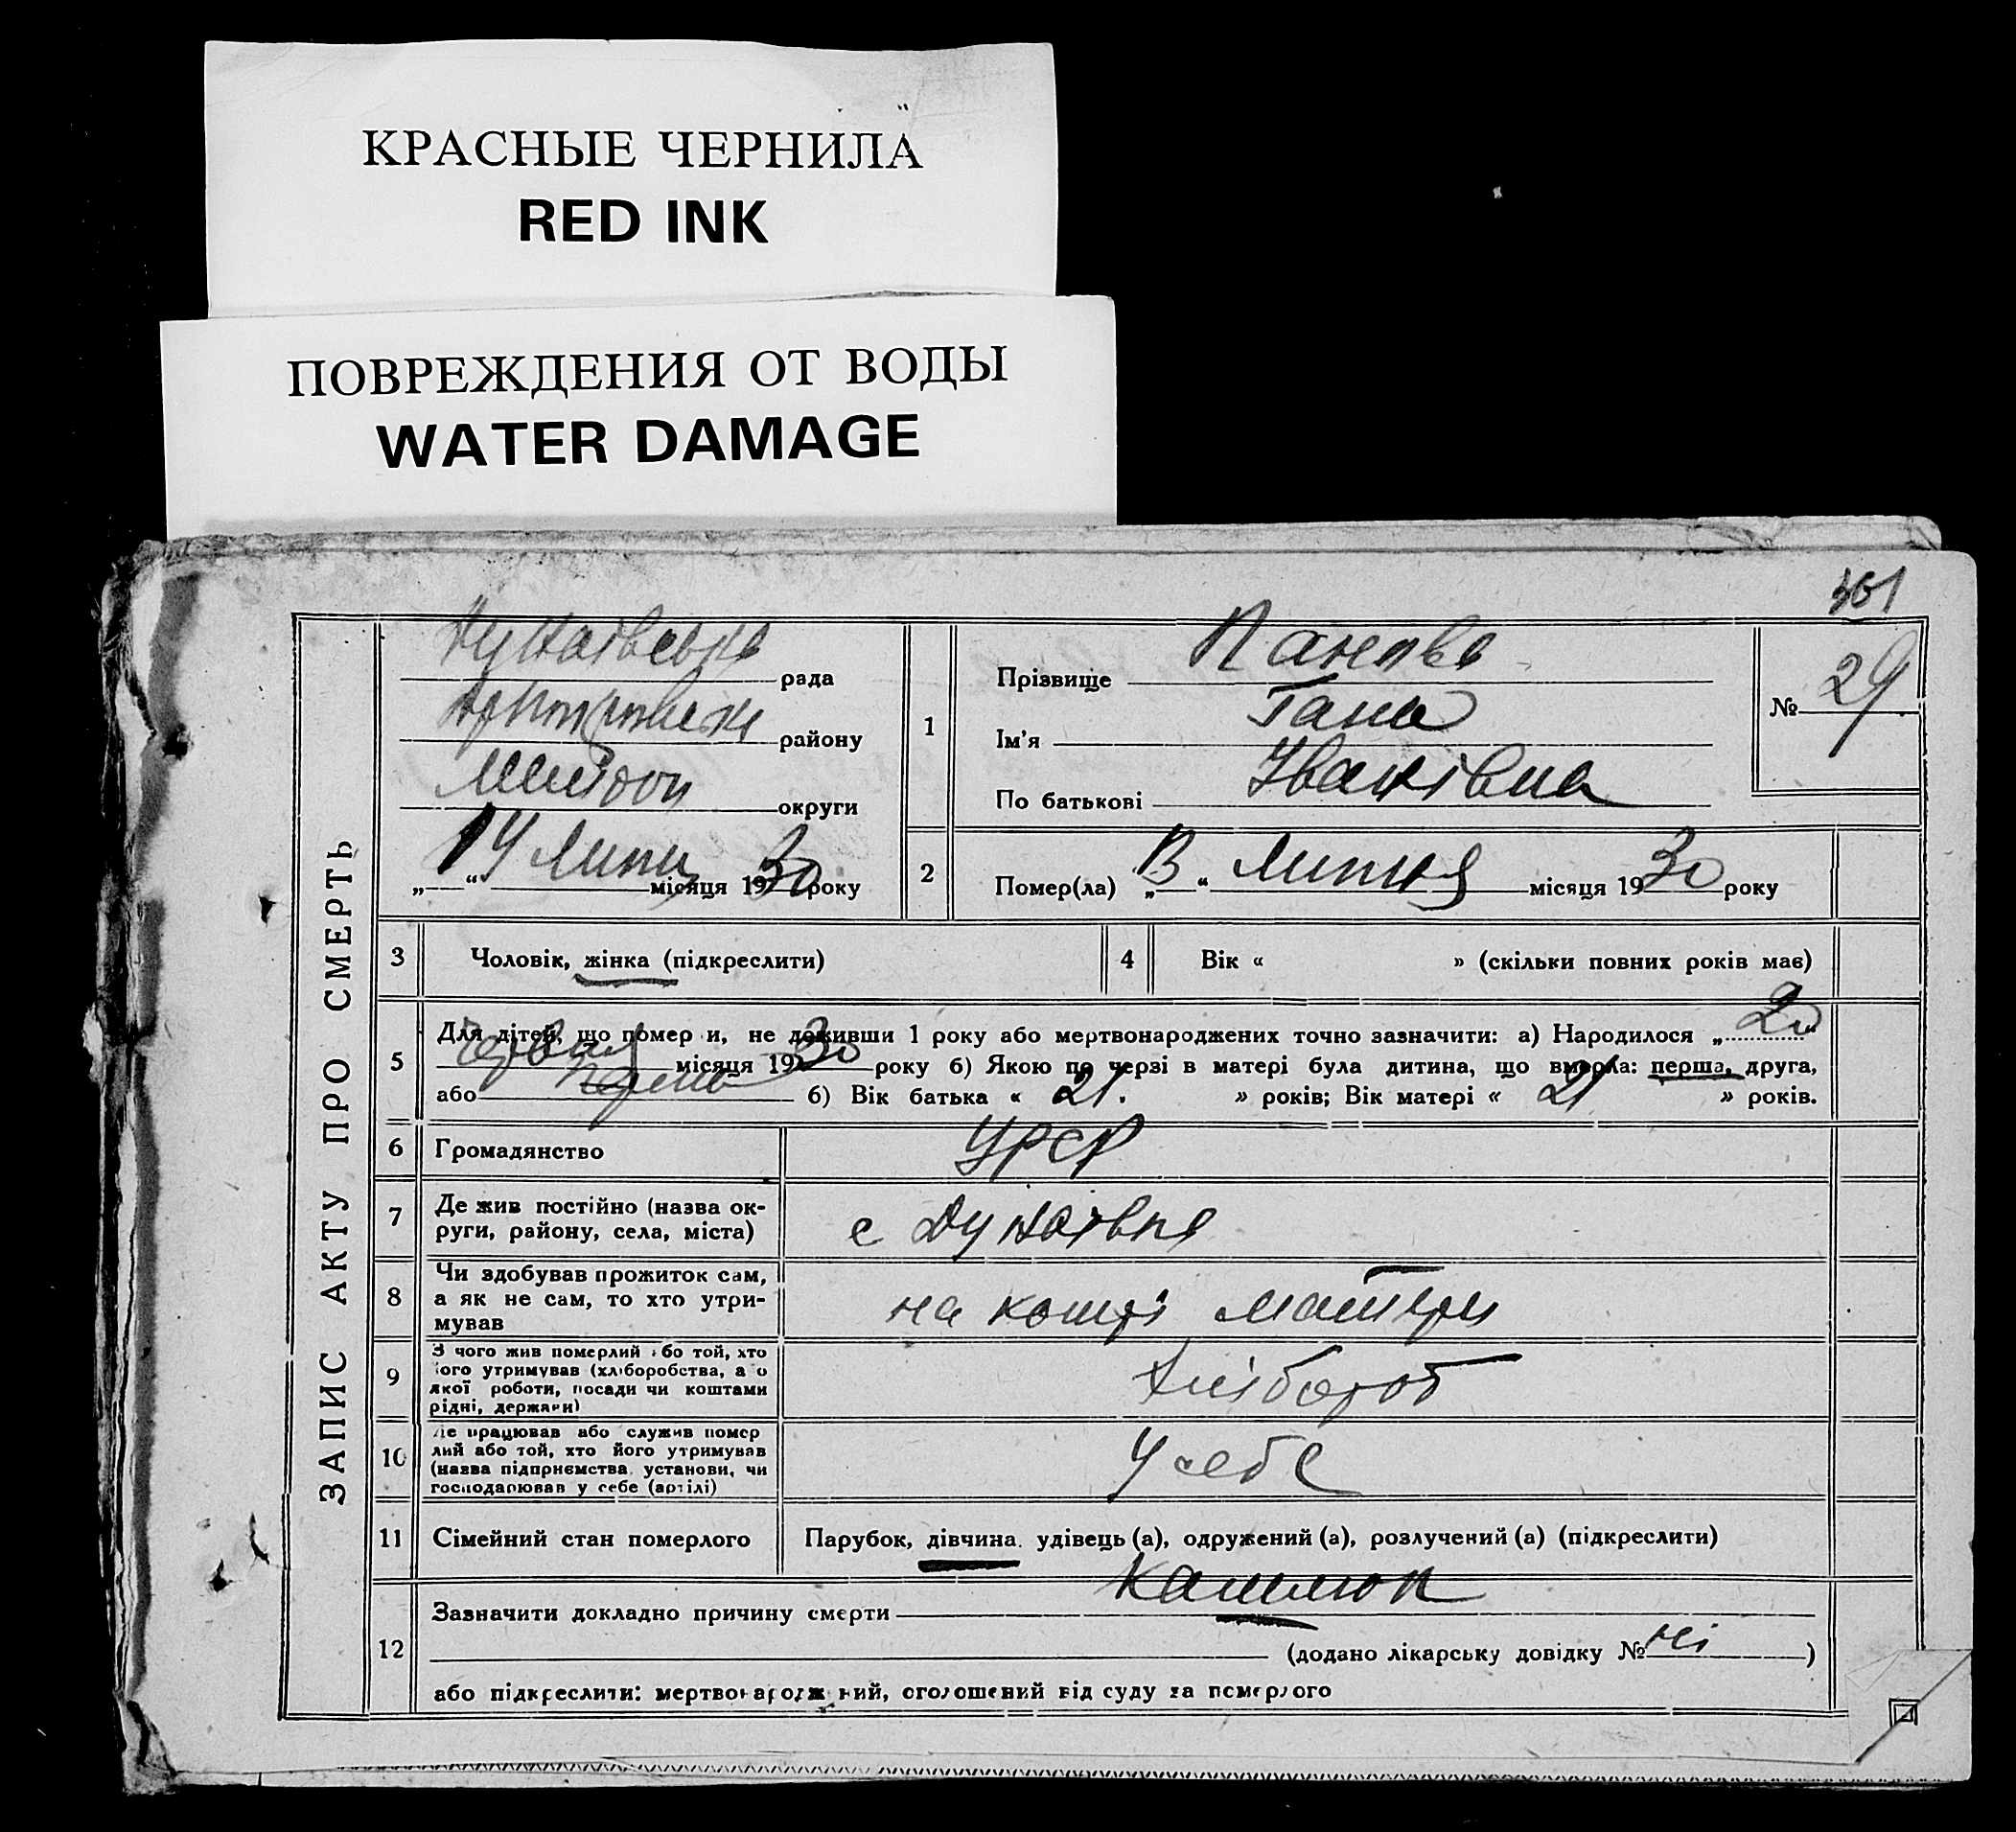 КРАСНЫЕ ЧЕРНИЛА
RED INK
ПОВРЕЖДЕНИЯ ОТ ВОДЫ
WATER DAMAGE
301
ЗАПИС АКТУ ПРО СМЕРТЬ
рада
району
округи
„14“ Липня місяця 1930 року
1
Прізвище
Ім'я Ганна
По батькові Іванівна
№ 29
2 Помер(ла) „13“ Липня місяця 1930 року
3 Чоловік, жінка (підкреслити)
4 Вік « » (скільки повних років має)
5 Для дітей, що помер и, не доживши 1 року або мертвонароджених точно зазначити: а) Народилося „20“
Червня місяця 1930 року б) Якою по черзі в матері була дитина, що вмерла: перша, друга,
або перша б) Вік батька « 21. » років; Вік матері « 21 » років.
6 Громадянство УРСР
7 Де жив постійно (назва ок-
руги, району, села, міста) с Дунаївка
8 Чи здобував прожиток сам,
а як не сам, то хто утри-
мував на кошті матери
9 З чого жив померлий або той, хто
його утримував (хліборобства, а о
якої роботи, посади чи коштами
рідні, держави) Хлібороб
10 Де працював або служив помер
лий або той, хто його утримував
(назва підприємства, установи, чи
господарював у себе (артілі) У себе
11 Сімейний стан померлого Парубок, дівчина, удівець (а), одружений (а), розлучений (а) (підкреслити)
12 Зазначити докладно причину смерти Кашлюк
(додано лікарську довідку № ні)
або підкреслити: мертвонароджений, оголошений від суду за померлого